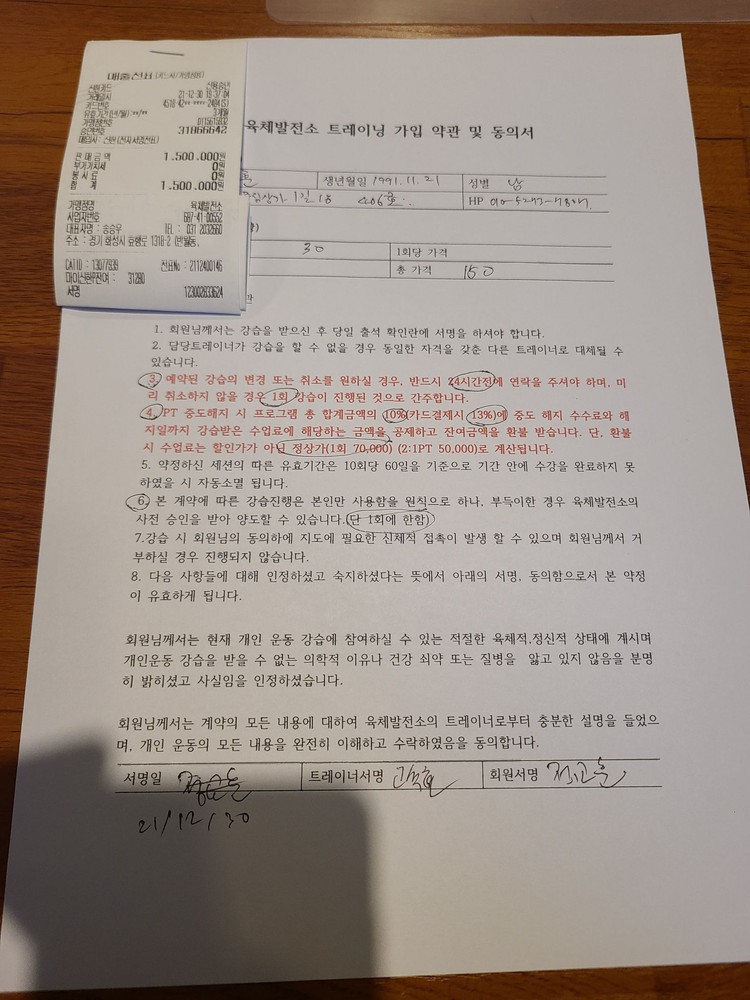 매출전표 (카드사/가맹점용)
신한카드 신용승인
거래일시 21-12-30 19:37:04
카드번호 4518-42**-****-2404(S)
유효기간(년/월) **/** 3개월
가맹점번호 0115615032
승인번호 31866642
매입사 : 신한(전자서명전표)
판매금액 1,500,000원
부가가치세 0원
봉사료 0원
합계 1,500,000원
가맹점명 : 육체발전소
사업자번호 687-41-00552
대표자명 : 송승우 TEL : 031 2032660
주소 : 경기 화성시 효행로 1318-2 (반월동,
CATID : 13077939 전표No : 2112400146
마이신한P잔여 : 31280
서명 123002833624
육체발전소 트레이닝 가입 약관 및 동의서
생년월일 1991.11.21 성별 남
406호 HP
30 1회당 가격
총 가격 150
1. 회원님께서는 강습을 받으신 후 당일 출석 확인란에 서명을 하셔야 합니다.
2. 담당트레이너가 강습을 할 수 없을 경우 동일한 자격을 갖춘 다른 트레이너로 대체될 수
있습니다.
3. 예약된 강습의 변경 또는 취소를 원하실 경우, 반드시 24시간전에 연락을 주셔야 하며, 미
리 취소하지 않을 경우 1회 강습이 진행된 것으로 간주합니다.
4. PT 중도해지 시 프로그램 총 합계금액의 10%(카드결제시 13%)에 중도 해지 수수료와 해
지일까지 강습받은 수업료에 해당하는 금액을 공제하고 잔여금액을 환불 받습니다. 단, 환불
시 수업료는 할인가가 아닌 정상가(1회 70,000) (2:1PT 50,000)로 계산됩니다.
5. 약정하신 세션의 따른 유효기간은 10회당 60일을 기준으로 기간 안에 수강을 완료하지 못
하였을 시 자동소멸 됩니다.
6. 본 계약에 따른 강습진행은 본인만 사용함을 원칙으로 하나, 부득이한 경우 육체발전소의
사전 승인을 받아 양도할 수 있습니다.(단 1회에 한함)
7.강습 시 회원님의 동의하에 지도에 필요한 신체적 접촉이 발생 할 수 있으며 회원님께서 거
부하실 경우 진행되지 않습니다.
8. 다음 사항들에 대해 인정하셨고 숙지하셨다는 뜻에서 아래의 서명, 동의함으로서 본 약정
이 유효하게 됩니다.
회원님께서는 현재 개인 운동 강습에 참여하실 수 있는 적절한 육체적,정신적 상태에 계시며
개인운동 강습을 받을 수 없는 의학적 이유나 건강 쇠약 또는 질병을 앓고 있지 않음을 분명
히 밝히셨고 사실임을 인정하셨습니다.
회원님께서는 계약의 모든 내용에 대하여 육체발전소의 트레이너로부터 충분한 설명을 들었으
며, 개인 운동의 모든 내용을 완전히 이해하고 수락하였음을 동의합니다.
서명일 트레이너서명 회원서명
21/12/30